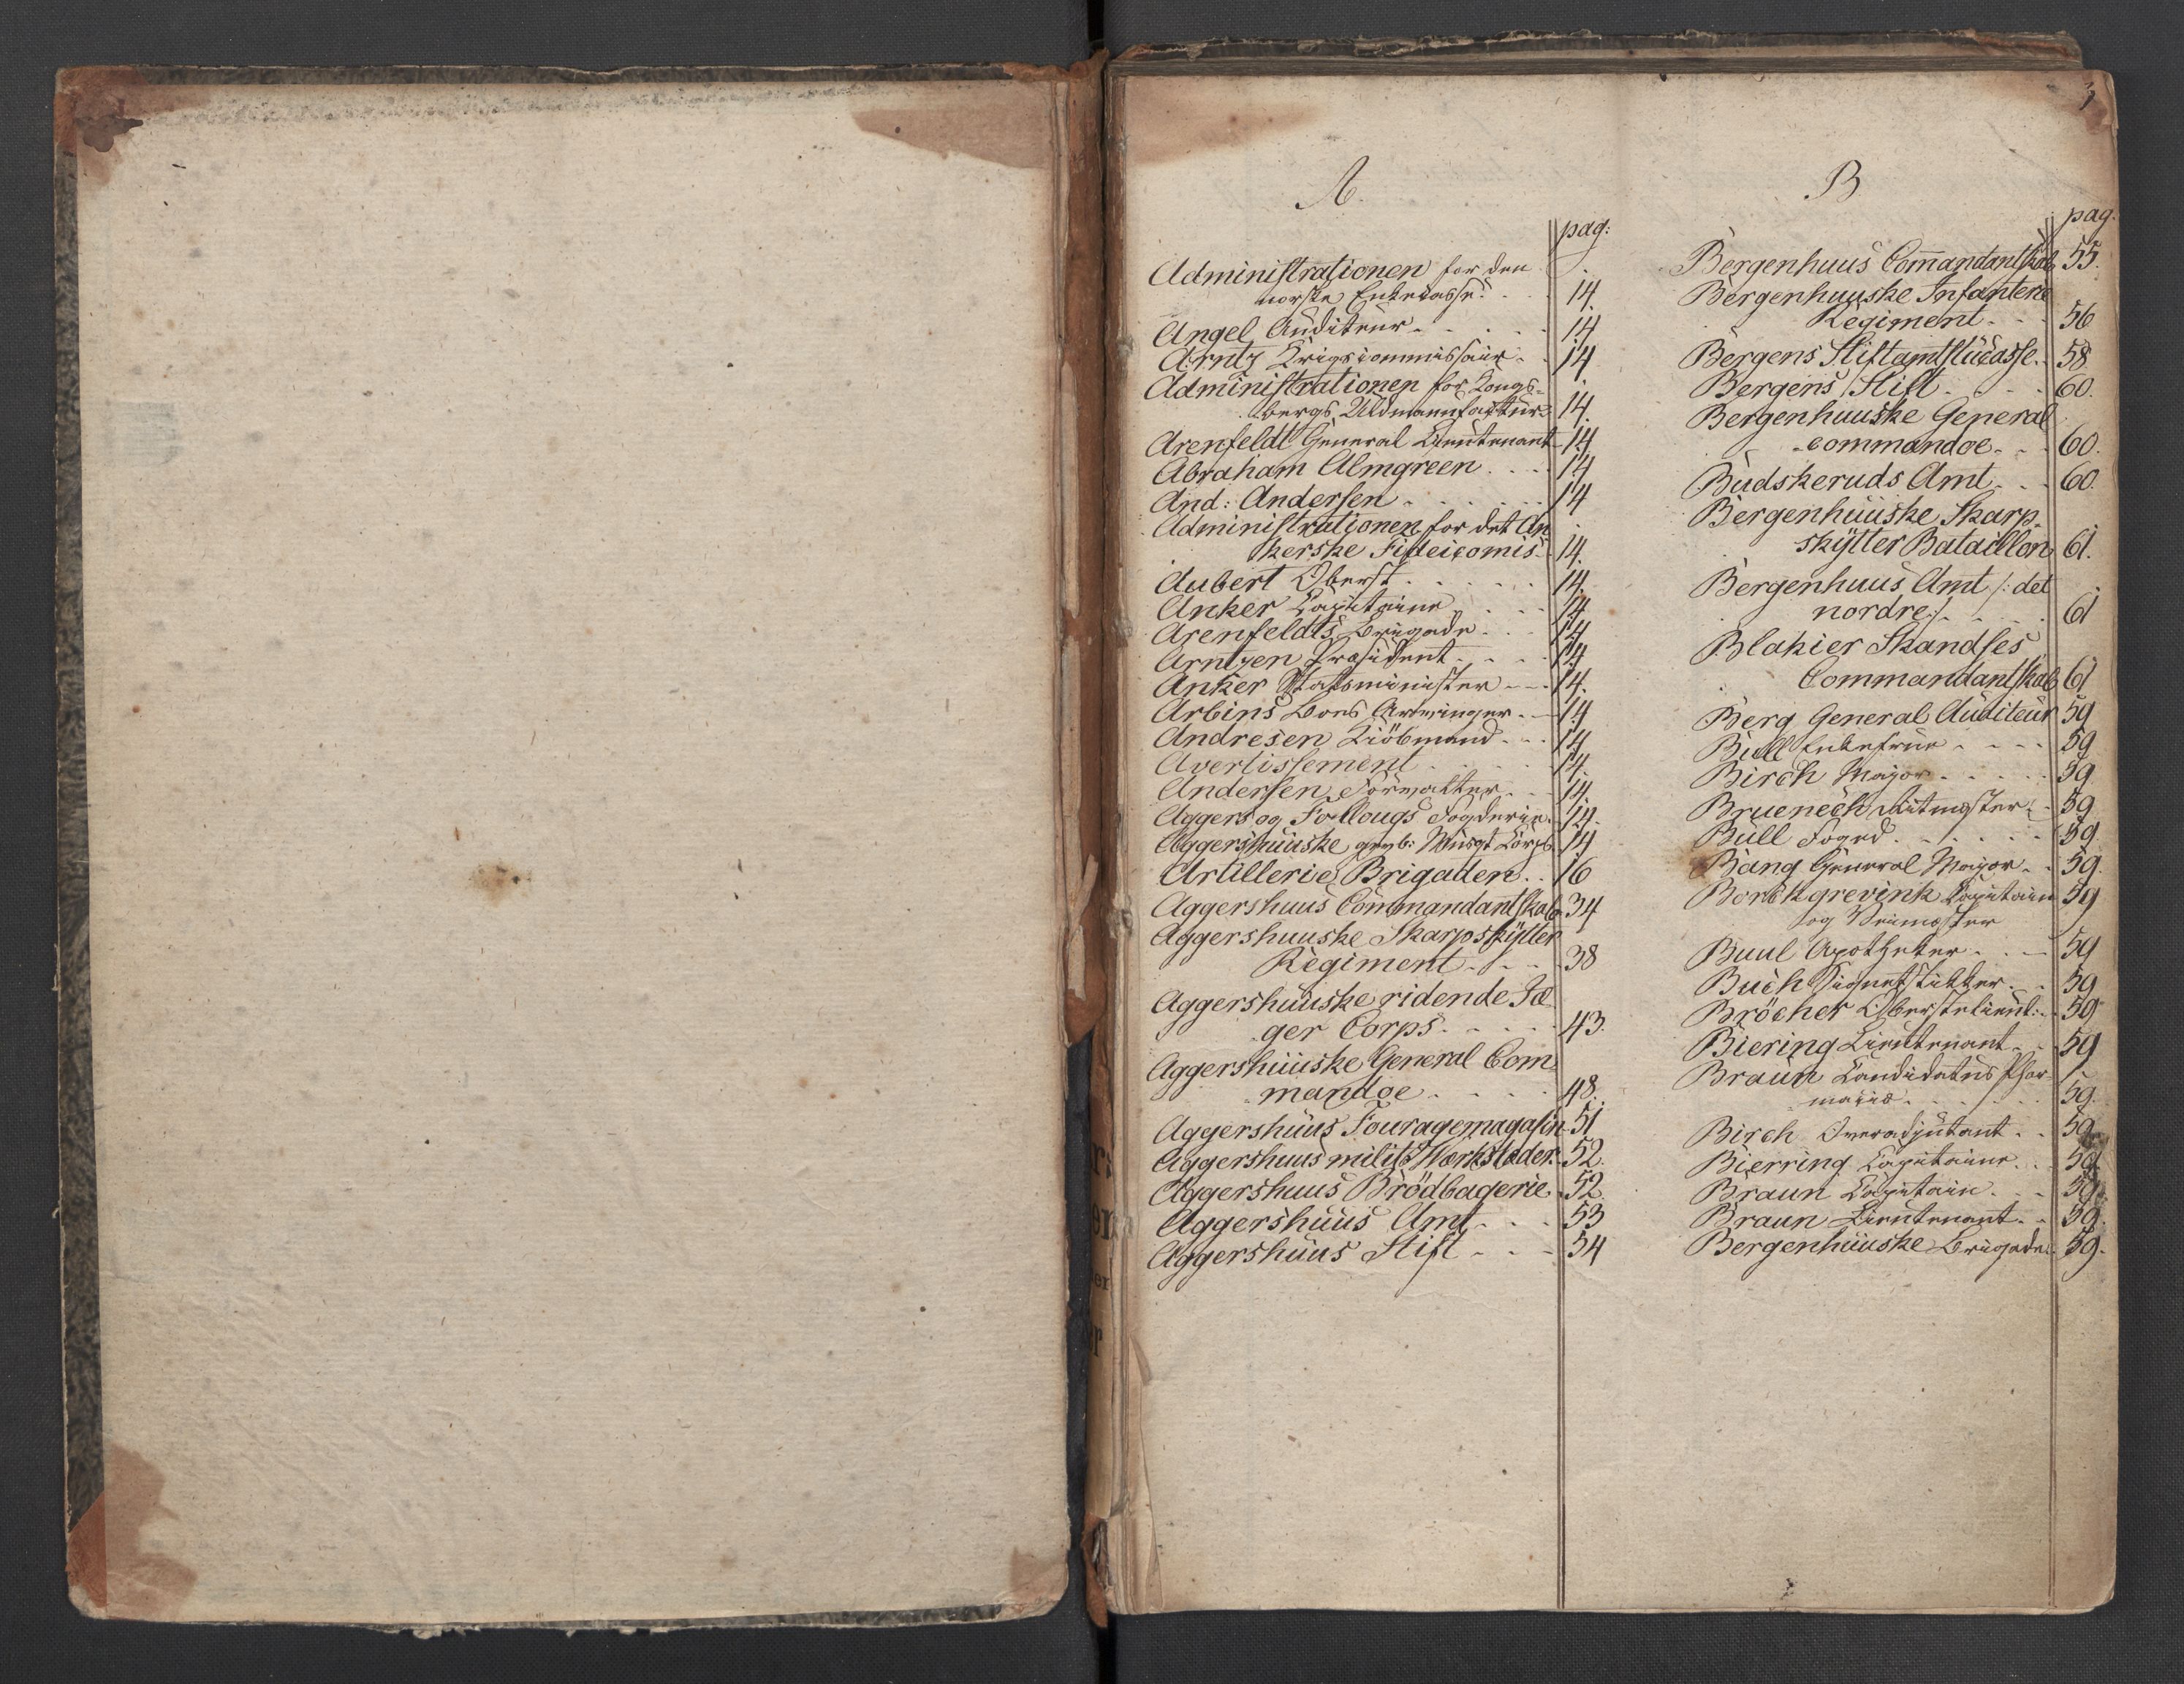 A.
pag:
Administrationen for den
norske Enkecasse. 14.
Angel Auditeur 14
Arntz Krigscommissair 14
Administrationen for Kongs-
bergs Uldmanufactur 14.
Arenfeldt General Lieutenant 14
Abraham Almgreen 14
And: Andersen 14
Administrationen for det An
kerske Fideicomis 14.
Aubert Oberst 14.
Anker Capitaine 14
Arenfeldts Brigade 14
Arntzen Præsident 14
Anker Statsminister 14.
Arbins Boes Arvinger 14
Andresen Kiöbmand 14
Avertissement 14.
Andersen Forvalter 14.
Aggers og Follougs Fogderie 14.
Aggershuuske gevb: Musqt Corps 14
Artillerie Brigaden 16
Aggershuus Commandantskab 34
Aggershuuske Skarpskÿtter
Regiment 38
Aggershuuske ridende Jæ
ger Corps 43.
Aggershuuske General Com
mandoe 48.
Aggershuus Fouragemagasin 51
Aggershuus milit: Værksteder 52.
Aggershuus Brödbagerie 52
Aggershuus Amt 53
Aggershuus Stift 54
3
B
pag.
Bergenhuus Com̄andantskab 55.
Bergenhuuske Infanterie
Regiment 56
Bergens Stiftamtstucasse 58
Bergens Stift 60.
Bergenhuuske General
commandoe 60.
Budskeruds Amt 60.
Bergenhuuske Skarp-
skÿtter Bataillon 61.
Bergenhuus Amt /: det
nordre :/ 61
Blakier Skandses
Commandantskab 61
Berg General Auditeur 59
Bull Enkefrue 59
Birch Major 59
Bruenech Ritmester 59
Bull Foged 59
Bang General Major 59.
Borchgrevink Capitain 59
og Veimester
Buul Apotheker 59
Buch Signetstikker 59
Bröcher Oberstelieut: 59
Biering Lieutenant 59
Braun Candidatus Phar-
maciæ 59.
Birch Overadjutant 59
Bierring Capitaine 59
Braun Capitain 59
Braun Lieutenant 59.
Bergenhuuske Brigade 59.